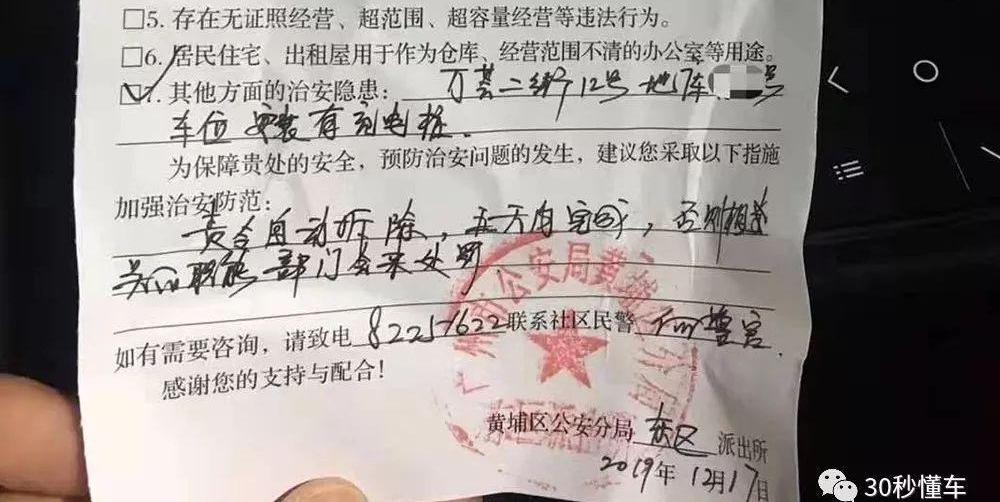 □5. 存在无证照经营、超范围、超容量经营等违法行为。
□6. 居民住宅、出租屋用于作为仓库、经营范围不清的办公室等用途。
□7. 其他方面的治安隐患：万荟二街12号地库 号
车位安装有充电桩.
为保障贵处的安全，预防治安问题的发生，建议您采取以下措施
加强治安防范：
责令自动拆除，五天内完成，否则
职能部门会来处罚.
如有需要咨询，请致电 82251622 联系社区民警 警官.
感谢您的支持与配合!
广州市公安局黄埔区分局
黄埔区公安分局 东区 派出所
2019年12月17日
30秒懂车